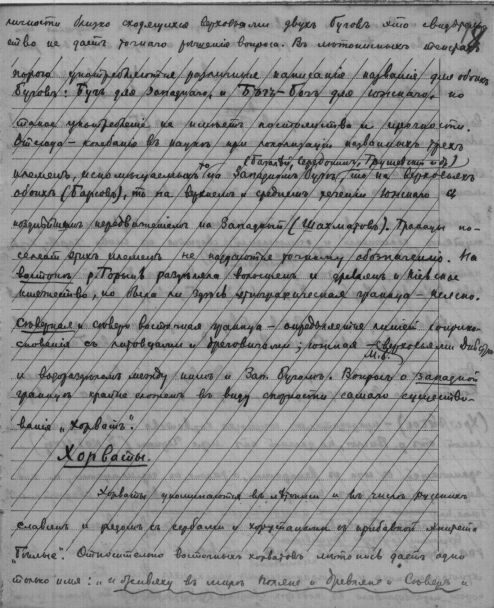 личности близко сходящихся верховьями двухъ Буговъ это свидѣтель-
ство не даетъ точнаго рѣшенія вопроса. Въ лѣтописныхъ
употребляются различныя написанія названія для обоихъ
Буговъ: Бугъ для Западнаго, и Бъгъ – Богъ для Южнаго, но
такое употребленіе не имѣетъ постоянства и прочности.
Отсюда – колебаніе въ наукѣ при локализаціи названныхъ трехъ
(Багалѣй, Середонинъ, Грушевскій и др.)
племенъ, то по Западному Бугу, то на верховьяхъ
обоихъ (Барсовъ), то на верхнемъ и среднемъ теченіи Южнаго с
позднѣйшимъ передвиженіемъ на Западный (Шахматовъ). Границы по-
селеній этихъ племенъ не поддаются точному обозначенію. На
востокѣ р. Горынь раздѣляла волынянъ и древлянъ и Кіевское
княжество, но была ли здѣсь этнографическая граница – неясно.
Сѣверная и сѣверо восточная граница – опредѣляется линіей соприко-
сновенія съ литовцами и дреговичами; южная – верховьями Днѣстра
м.б.
и водораздѣломъ между нимъ и Зап. Бугомъ. Вопросъ о западной
границѣ крайне сложенъ въ виду спорности самаго существо-
ванія „Хорватъ".
Хорваты.
Хорваты упоминаются въ лѣтописи и въ числѣ русскихъ
славянъ и рядомъ съ сербами и хорутанами съ прибавкой эпитета
"бѣлые". Относительно восточныхъ хорватовъ лѣтопись даетъ одно
только имя: „и бяху въ мирѣ Поляне и Древляне и Сѣверъ и